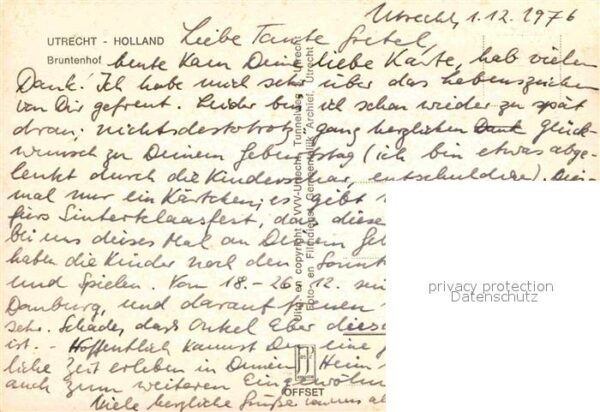 Utrecht, 1.12.1976
UTRECHT - HOLLAND
Bruntenhof
Liebe Tante Gretel,
heute kam Deine liebe Karte, hab vielen
Dank! Ich habe mich sehr über das Lebenszeichen
von Dir gefreut. Leider bin ich schon wieder zu spät
dran; nichtsdestotrotz ganz herzlichen Dank Glück-
wunsch zu Deinem Geburtstag (ich bin etwas abge-
lenkt durch die Kinderschar, entschuldige). Dies
mal nur ein Kärtchen; es gibt
fürs Sinterklaasfest, das diese
bei uns dieses Mal an Deinem Ge
haben die Kinder noch den
und Spielen. Vom 18.-26.12.
und darauf freuen
sehr. Schade, dass Onkel Eber diese
ist. - Hoffentlich kannst Du eine
liche Zeit erleben in Deinem Heim
auch zum weiteren Eingewöhn
Viele herzliche Grüße von uns al
Uitg. en copyright: VVV-Utrecht, Utrecht
Foto- en Filmdienst Gemeentelijk Archief, Utrecht
OFFSET
privacy protection
Datenschutz